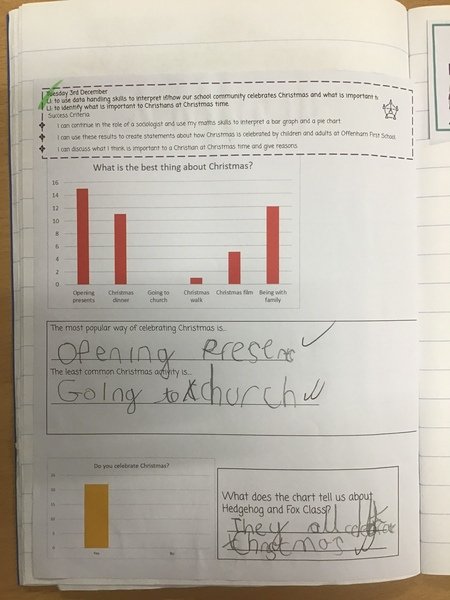 Tuesday 3rd December
LI: to use data handling skills to interpret if/how our school community celebrates Christmas and what is important
LI: to identify what is important to Christians at Christmas time.
Success Criteria
I can continue in the role of a sociologist and use my maths skills to interpret a bar graph and a pie chart.
I can use these results to create statements about how Christmas is celebrated by children and adults at Offenham First School.
I can discuss what I think is important to a Christian at Christmas time and give reasons.
What is the best thing about Christmas?
16
14
12
10
8
6
4
2
0
Opening presents
Christmas dinner
Going to church
Christmas walk
Christmas film
Being with family
The most popular way of celebrating Christmas is...
Opening
The least common Christmas activity is...
Going to church
Do you celebrate Christmas?
Yes
No
What does the chart tell us about
Hedgehog and Fox Class?
They all